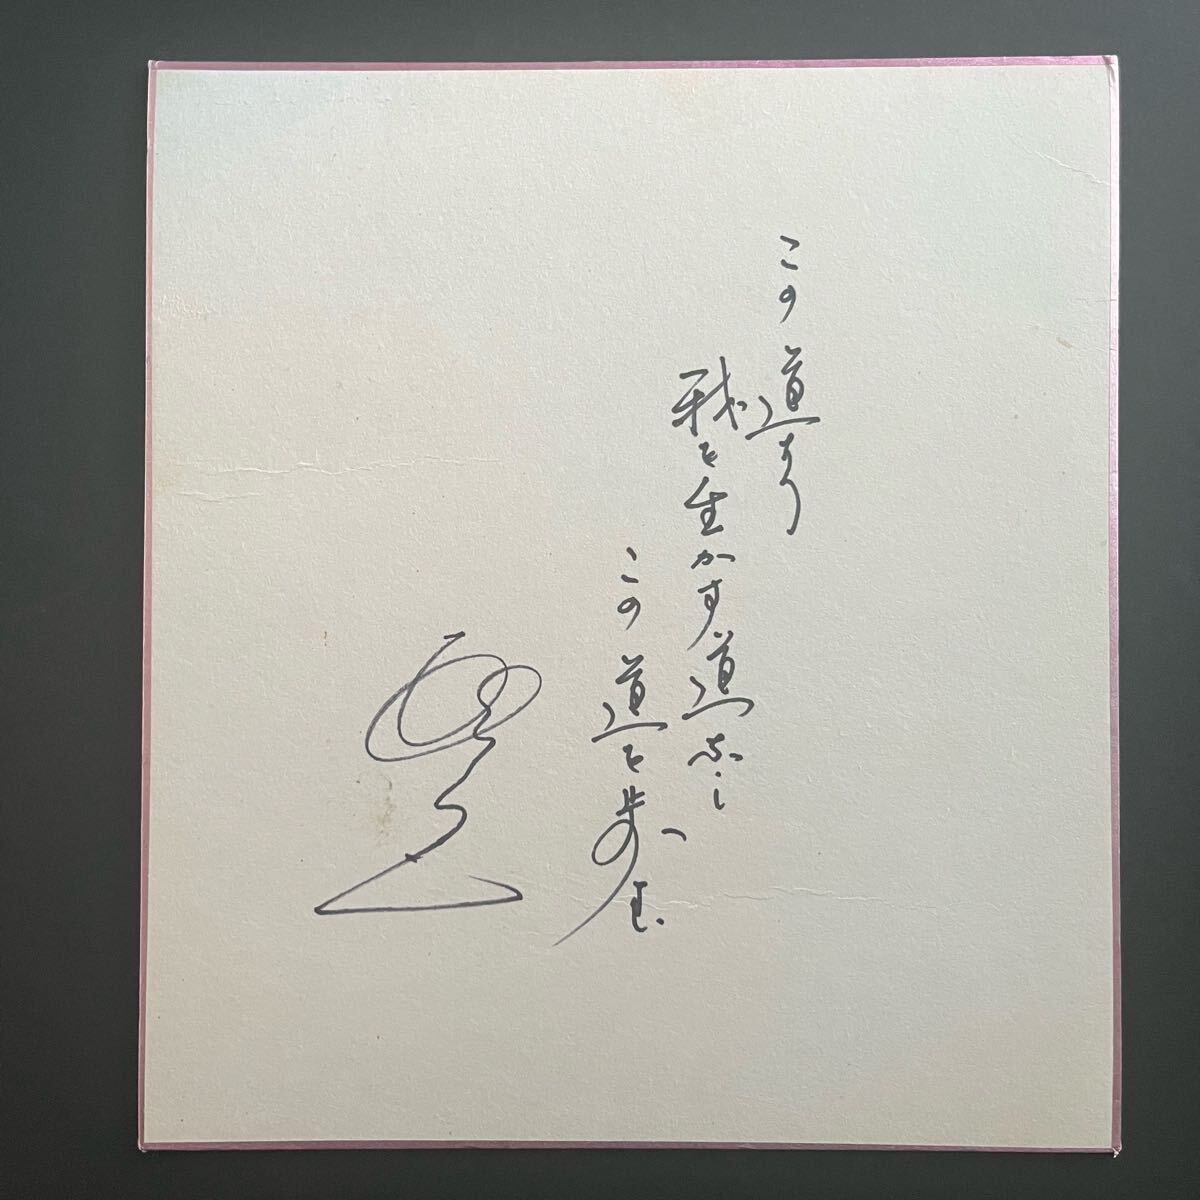 この道より
我を生かす道なし
この道を歩む